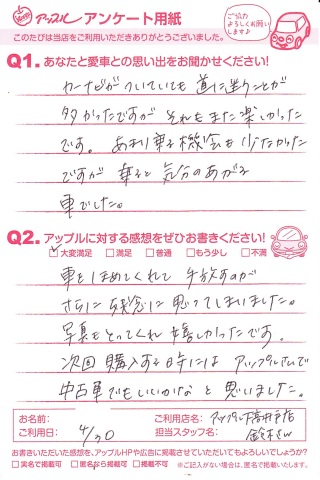 アップル アンケート用紙
ご協力
よろしくお願い
します♪
このたびは当店をご利用いただきありがとうございました。
Q1. あなたと愛車との思い出をお聞かせください!
カーナビがついていても 道に迷うことが
多かったですが それもまた楽しかった
です。 あまり乗る機会も少なかった
ですが 乗ると 気分のあがる
車でした。
Q2. アップルに対する感想をぜひお書きください!
☑大変満足 □満足 □普通 □もう少し □不満
車をほめてくれて 手放すのが
さらに 残念に思ってしまいました。
写真もとってくれ 嬉しかったです。
次回 購入する時には アップルさんで
中古車でもいいかな と 思いました。
お名前:
ご利用店名: アップル下高井戸店
ご利用日: 4/30
担当スタッフ名: 鈴木さん
お書きいただいた感想を、アップルHPや広告に掲載させていただいてもよろしいでしょうか?
□実名で掲載可 □匿名なら掲載可 □掲載不可 ※ご記入がない場合は、匿名で掲載いたします。